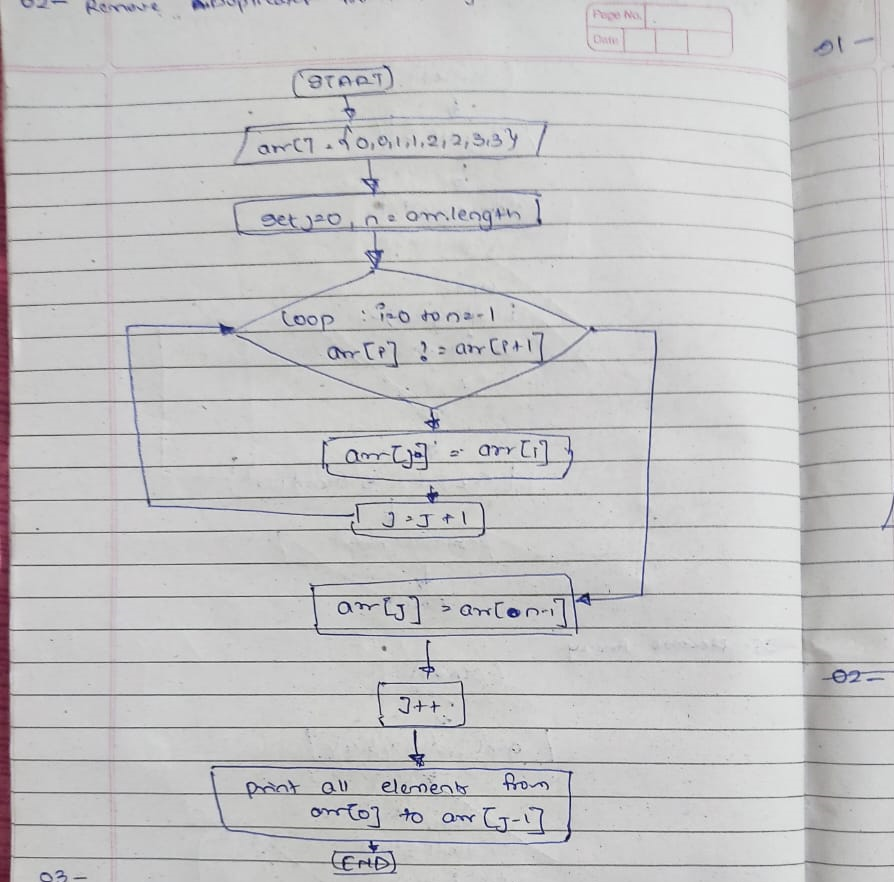 02- Remove
Page No.
Date
01-
(START)
arr[] = {0,0,1,1,2,2,3,3}
set j=0, n = arr.length
Loop : i=0 to n=-1
arr[i] != arr[i+1]
arr[j] = arr[i]
J = J + 1
arr[J] = arr[n-1]
J++
02-
print all elements from
arr[0] to arr[J-1]
(END)
03-